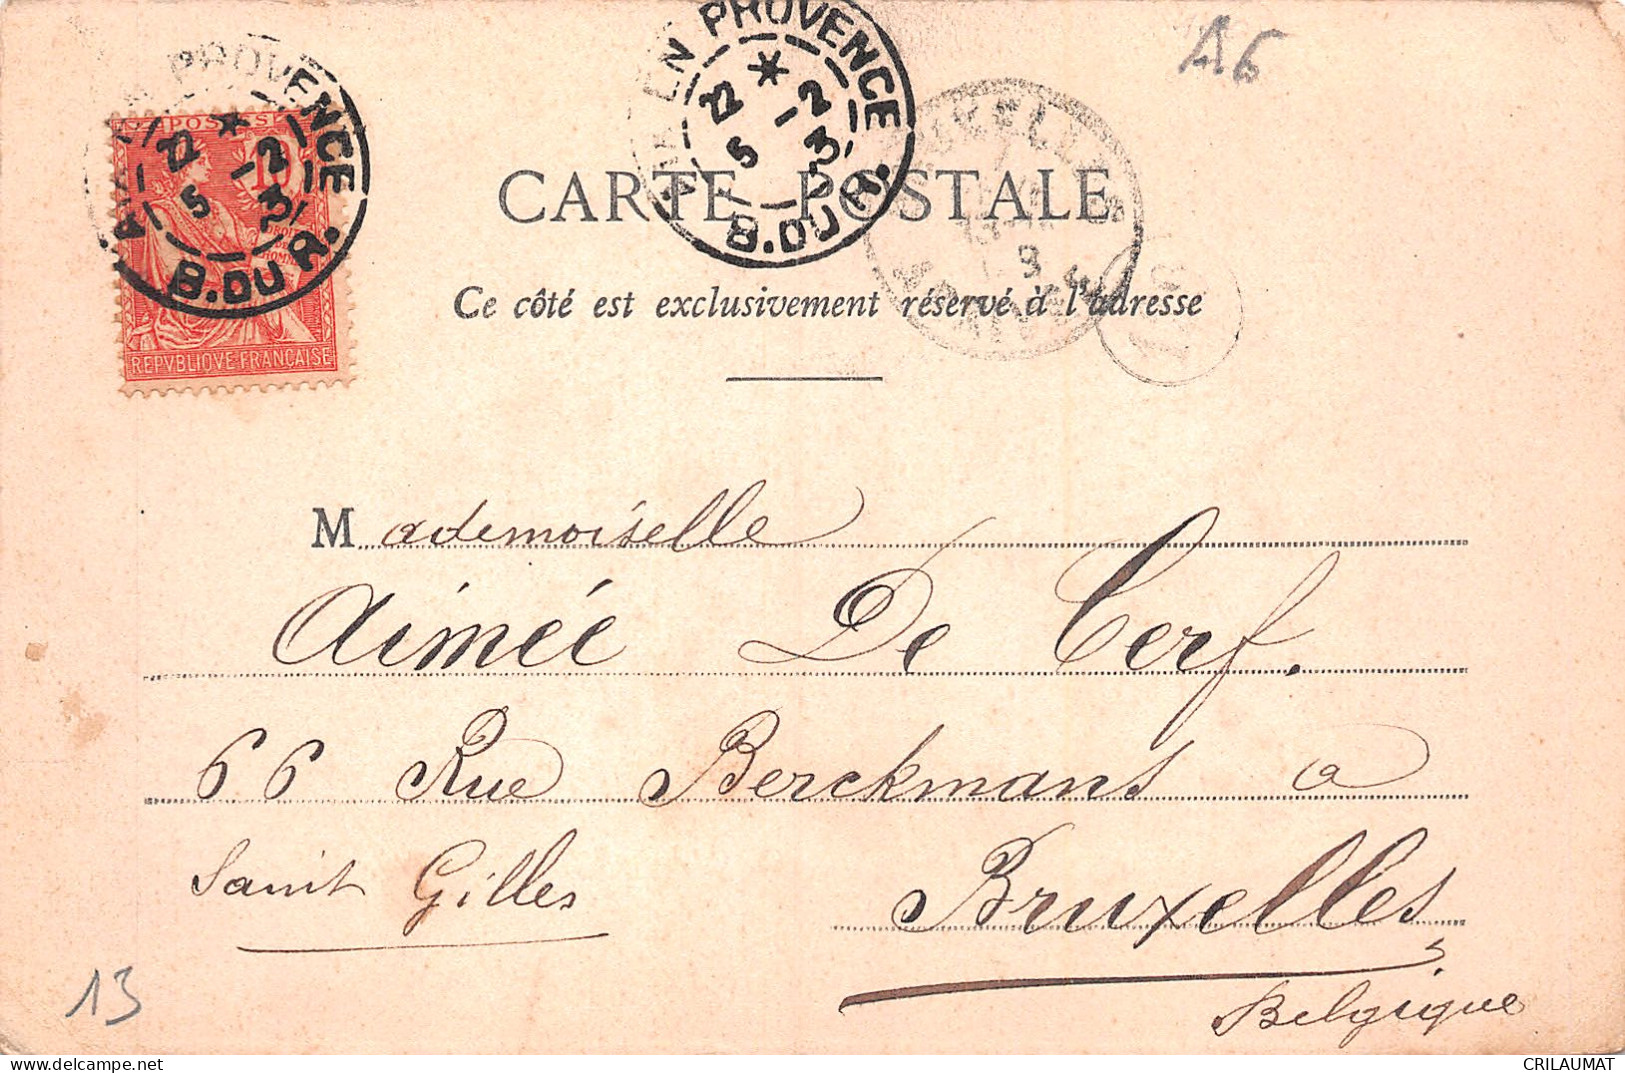 A6
EN PROVENCE
22 * 
5 -2
3
B.DU R.
PROVENCE
22 *
5 -2
3
B.DU R.
POSTES
10
REPVBLIQVE FRANÇAISE
CARTE POSTALE
Ce côté est exclusivement réservé à l'adresse
Mademoiselle
Aimée De Cerf.
66 Rue Berckmans a
Saint Gilles Bruxelles
Belgique
13
CRILAUMAT